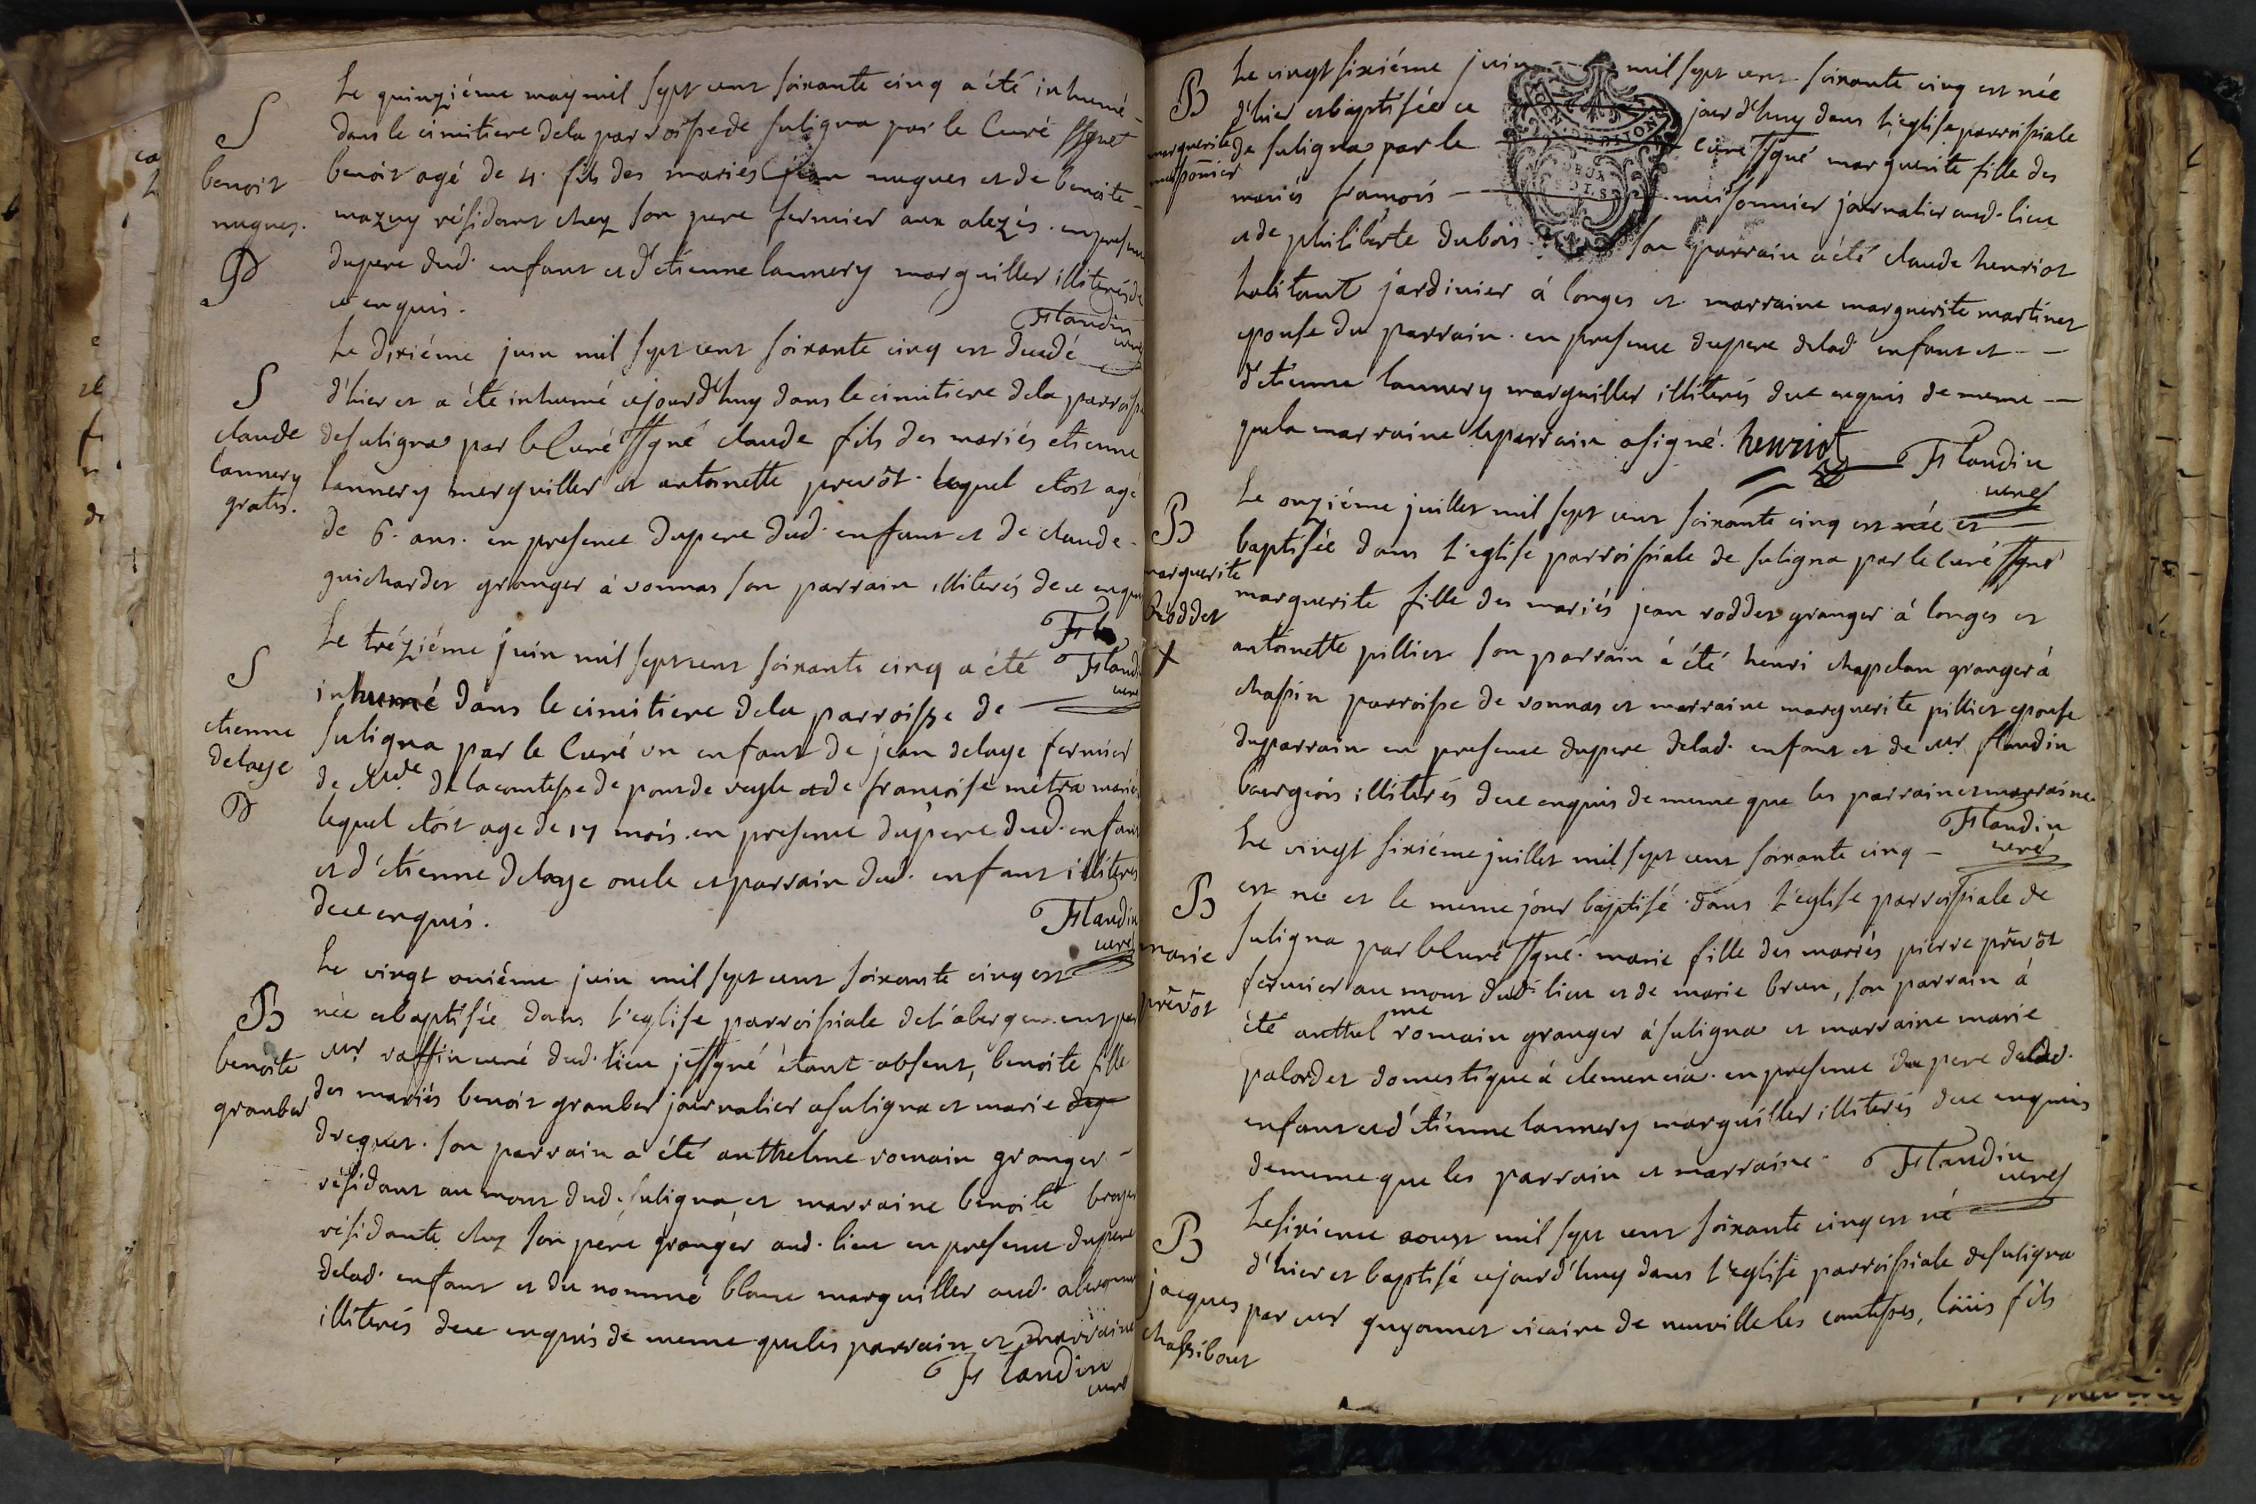 S
benoit
nugues.
Le quinziéme may mil sept cent soixante cinq a été inhumé
dans le cimitiere dela parroisse de suligna par le Curé ssgné
benoit agé de 4. fils des mariés jean nugues et de benoite
mazuy résidant chez son pere fermier aux alezés. en presence
dupere dud. enfant et d'etienne lannery marguiller illiterés de
ce enquis.
Flandin
curé
S
claude
lannery
gratis.
Le dixiéme juin mil sept cent soixante cinq est decedé
d'hier et a été inhumé cejourd'huy dans le cimitiere dela parroisse
desuligna par le Curé ssgné claude fils des mariés etienne
lannery merguiller et antoinette prevôt. lequel etoit agé
de 6. ans. en presence dupere dud. enfant et de claude
guichardet granger à vonnas son parrain illiterés de ce enquis
Fla
Flandin
curé
S
etienne
delaye
Le tréziéme juin mil sept cent soixante cinq a été
inhumé dans le cimitiere dela parroisse de
suligna par le Curé un enfant de jean delaye fermier
de Mde. de la comtesse de pont de veyle et de françoise metra mariés
lequel etoit age de 17 mois. en presence dupere dud. enfant
et d'étienne delaye oncle et parrain dud. enfant illiterés
de ce enquis.
Flandin
curé
B
benoite
granber
Le vingt oniéme juin mil sept cent soixante cinq est
née et baptisée dans l'eglise parroissiale de l'abergement par
mr raffin curé dud. lieu je ssgné étant absent, benoite fille
des mariés benoit granber journalier a suligna et marie deg
dreguet. son parrain a été anthelme romain granger
résidant au mont dud. suligna, et marraine benoite broyer
résidante chez son pére granger aud. lieu en presence dupere
delad. enfant et du nommé blanc marguiller aud. abergement
illiterés de ce enquis de meme que les parrain et marraine
Flandin
curé
B
marguerite
meissonier
Le vingt sixiéme juin mil sept cent soixante cinq est née
d'hier et baptisée ce jourd'huy dans l'eglise parroissiale
de suligna par le curé ssgné marguerite fille des
mariés françois meissonnier journalier aud. lieu
et de philiberte dubois son parrain a été claude henriot
DEUX
SOLS
habitant jardinier á longes et marraine marguerite martinet
epouse du parrain. en presence dupere delad. enfant et
d'etienne lannery marguiller illiterés de ce enquis de meme
que la marraine le parrain a signé. henriot
Flandin
curé
B
marguerite
Roddet
X
Le onziéme juillet mil sept cent soixante cinq est née et
baptisée dans l'eglise parroissiale de suligna par le curé ssgné
marguerite fille des mariés jean roddet granger á longes et
antoinette pilliet son parrain a été henri chapelan granger á
chassin parroisse de vonnas et marraine marguerite pilliet epouse
duparrain en presence dupere delad. enfant et de mr flandin
bourgeois illiterés de ce enquis de meme que les parrain et marraine.
Flandin
curé
B
marie
prevôt
Le vingt sixiéme juillet mil sept cent soixante cinq
est née et le meme jour baptisé dans l'eglise parroissiale de
suligna par le Curé ssgné. marie fille des mariés pierre prevôt
fermier au mont dud. lieu et de marie brun, son parrain á
été anthelme romain granger á suligna et marraine marie
palordet domestique á clemencia. en presence du pere delad.
enfant et d'étienne lannery marguiller illiterés de ce enquis
dememe que les parrain et marraine.
Flandin
curé
B
jacques
chassibout
Lesixieme aoust mil sept cent soixante cinq est né
d'hier et baptisé cejourd'huy dans l'eglise parroissiale desuligna
par mr guyonnet vicaire de neuville les comtesses, loüis fils